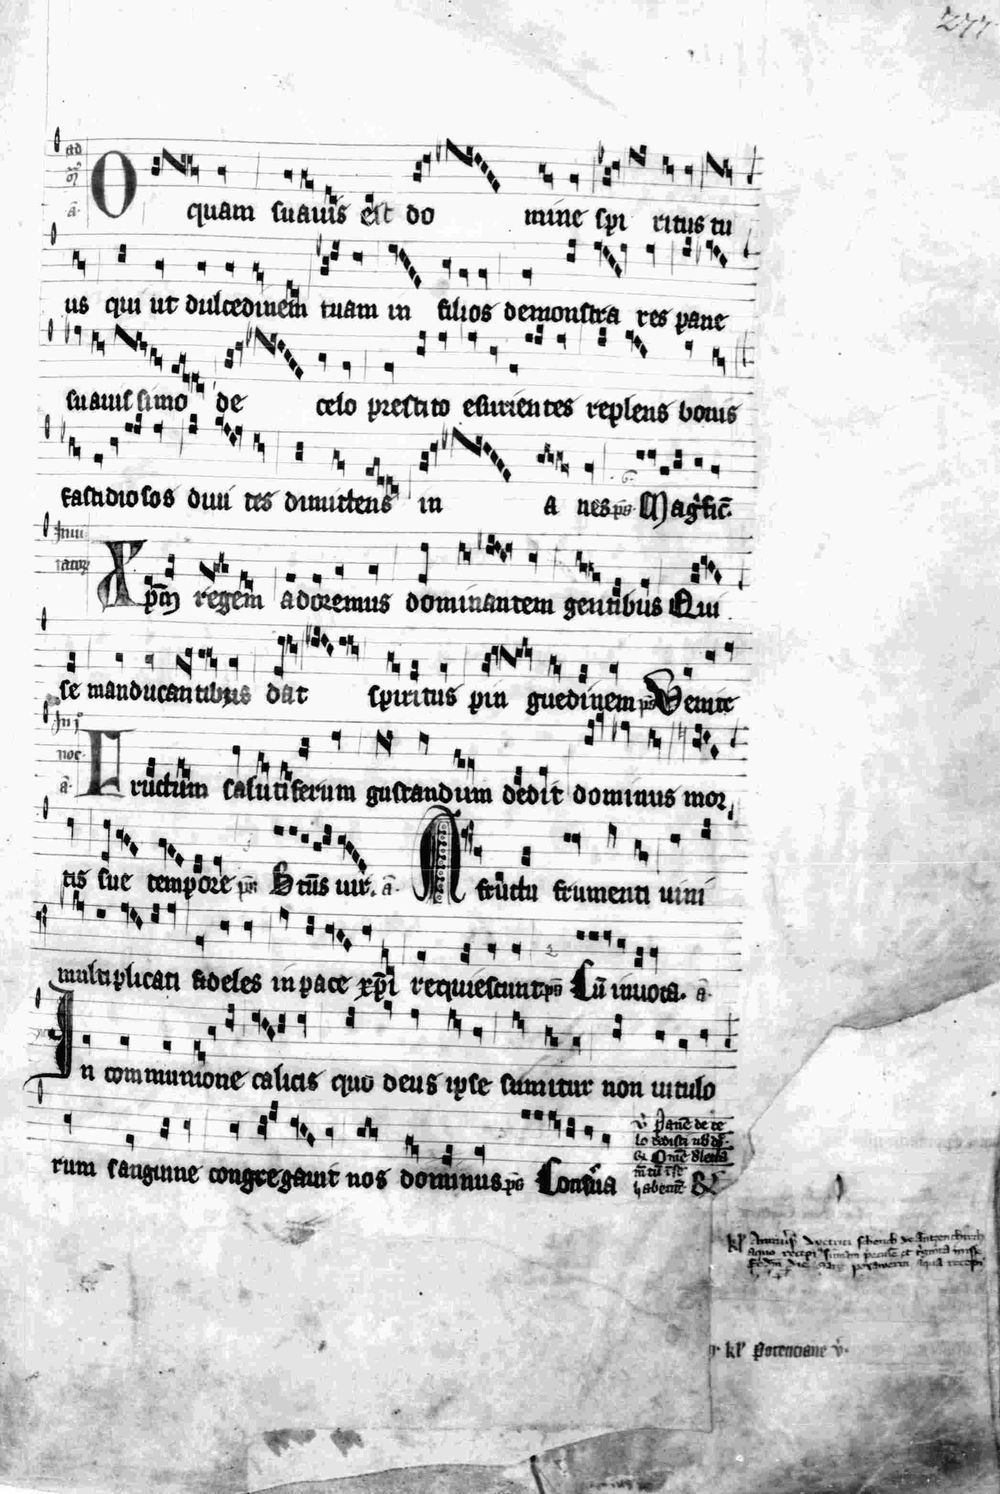 277
ad
O quam suauis est do mine spi ritus tu
us qui ut dulcedinem tuam in filios demonstra res pane
suauissimo de celo prestito esurientes replens bonis
fastidiosos diui tes dimittens in a nes ps̄ Mag̾fic̄.
Inui
tator̄
Xp̄m regem adoremus dominantem gentibus Qui
se manducantibus dat spiritus pin guedinem ps̄ Venite
In j°
noc.
ā
Fructum salutiferum gustandum dedit dominus mor
tis sue tempore ps̄ Btūs uir. ā. A fructu frumenti uini
multiplicati fideles in pace xp̄i requiescunt ps̄ Cū inuoca. ā
In communione calicis quo deus ipse sumitur non uitulo
rum sanguine congregauit nos dominus ps̄ Conserua
v̾ Panē de ce
lo
habentē &
kl̓ potenciane v̾.